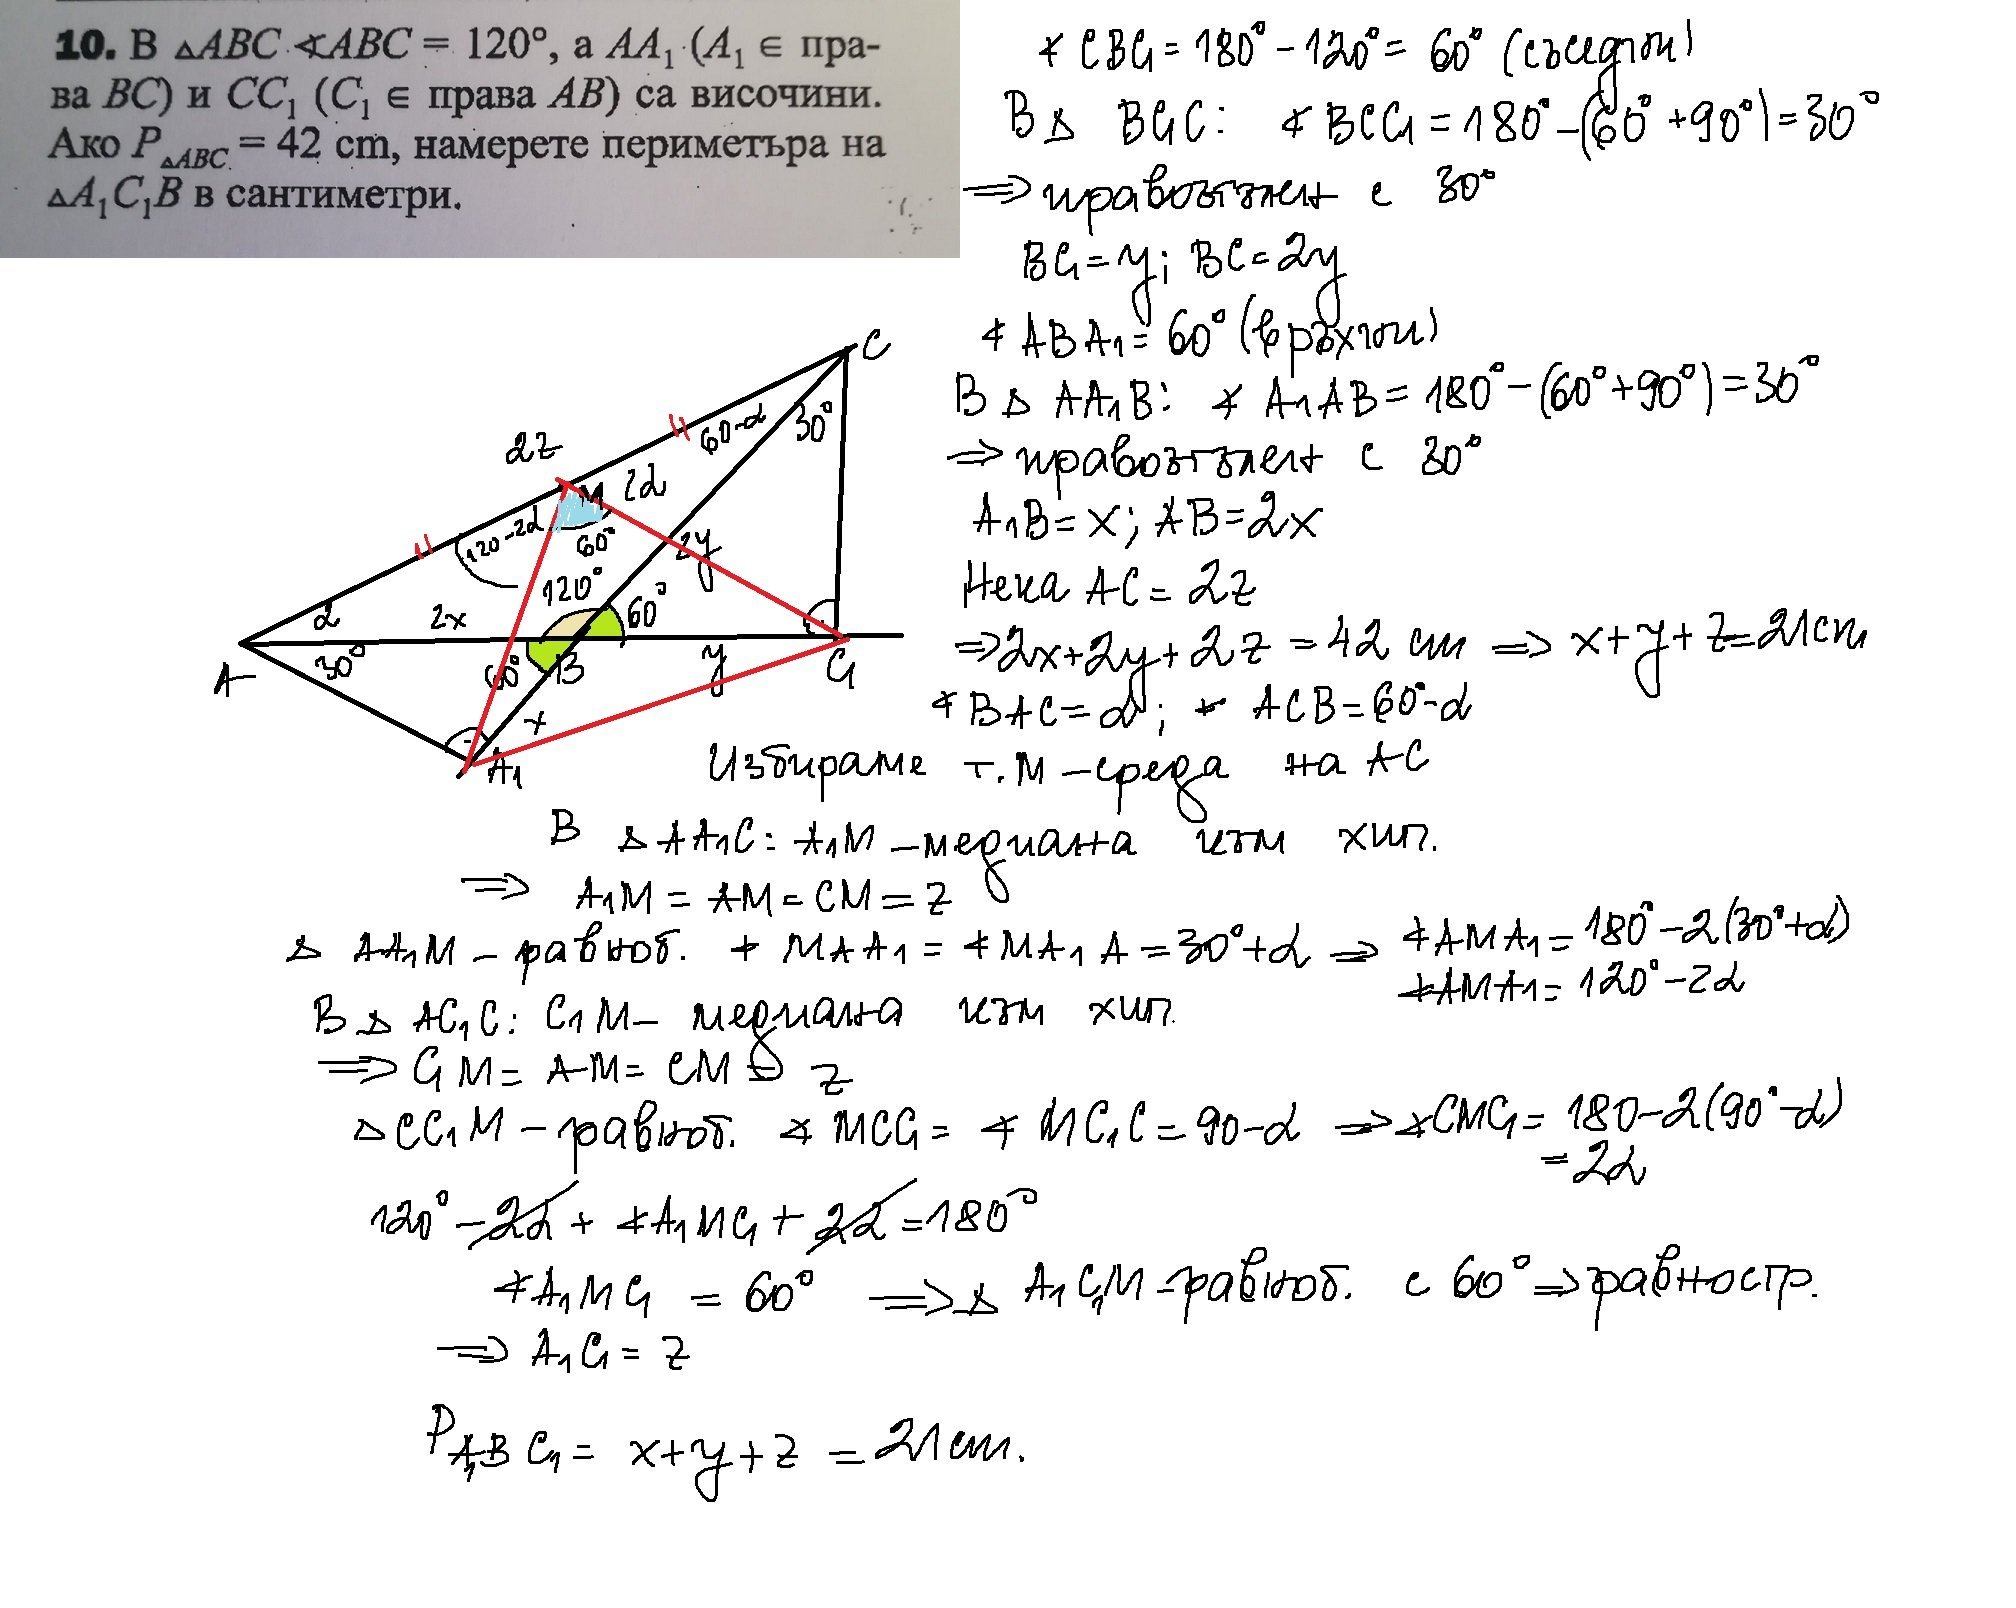 10. В △ABC ∢ABC = 120°, а AA₁ (A₁ ∈ пра-
ва BC) и CC₁ (C₁ ∈ права AB) са височини.
Ако P△ABC = 42 cm, намерете периметъра на
△A₁C₁B в сантиметри.
∢ CBC₁ = 180° - 120° = 60° (съседни)
В △ BC₁C: ∢ BCC₁ = 180° - (60° + 90°) = 30°
⇒ правоъгълен с 30°
BC₁ = y; BC = 2y
∢ ABA₁ = 60° (връхни)
В △ AA₁B: ∢ A₁AB = 180° - (60° + 90°) = 30°
⇒ правоъгълен с 30°
A₁B = x; AB = 2x
Нека AC = 2z
⇒ 2x + 2y + 2z = 42 cm ⇒ x + y + z = 21 cm
∢ BAC = α; ∢ ACB = 60° - α
Избираме т. M - среда на AC
C
2z
60-α
30°
M
2α
120-2α
60°
2y
120°
60°
α
2x
A
30°
60°
B
y
C₁
x
A₁
В △ AA₁C: A₁M - медиана към хип.
⇒ A₁M = AM = CM = z
△ AA₁M - равноб. ∢ MAA₁ = ∢ MA₁A = 30° + α ⇒ ∢AMA₁ = 180° - 2(30° + α)
∢AMA₁ = 120° - 2α
В △ AC₁C: C₁M - медиана към хип.
⇒ C₁M = AM = CM = z
△ CC₁M - равноб. ∢ MCC₁ = ∢ MC₁C = 90 - α ⇒ ∢CMC₁ = 180 - 2(90° - α)
= 2α
120° - 2α + ∢A₁MC₁ + 2α = 180°
∢A₁MC₁ = 60° ⇒ △ A₁C₁M - равноб. с 60° ⇒ равностр.
⇒ A₁C₁ = z
PA₁BC₁ = x + y + z = 21 cm.